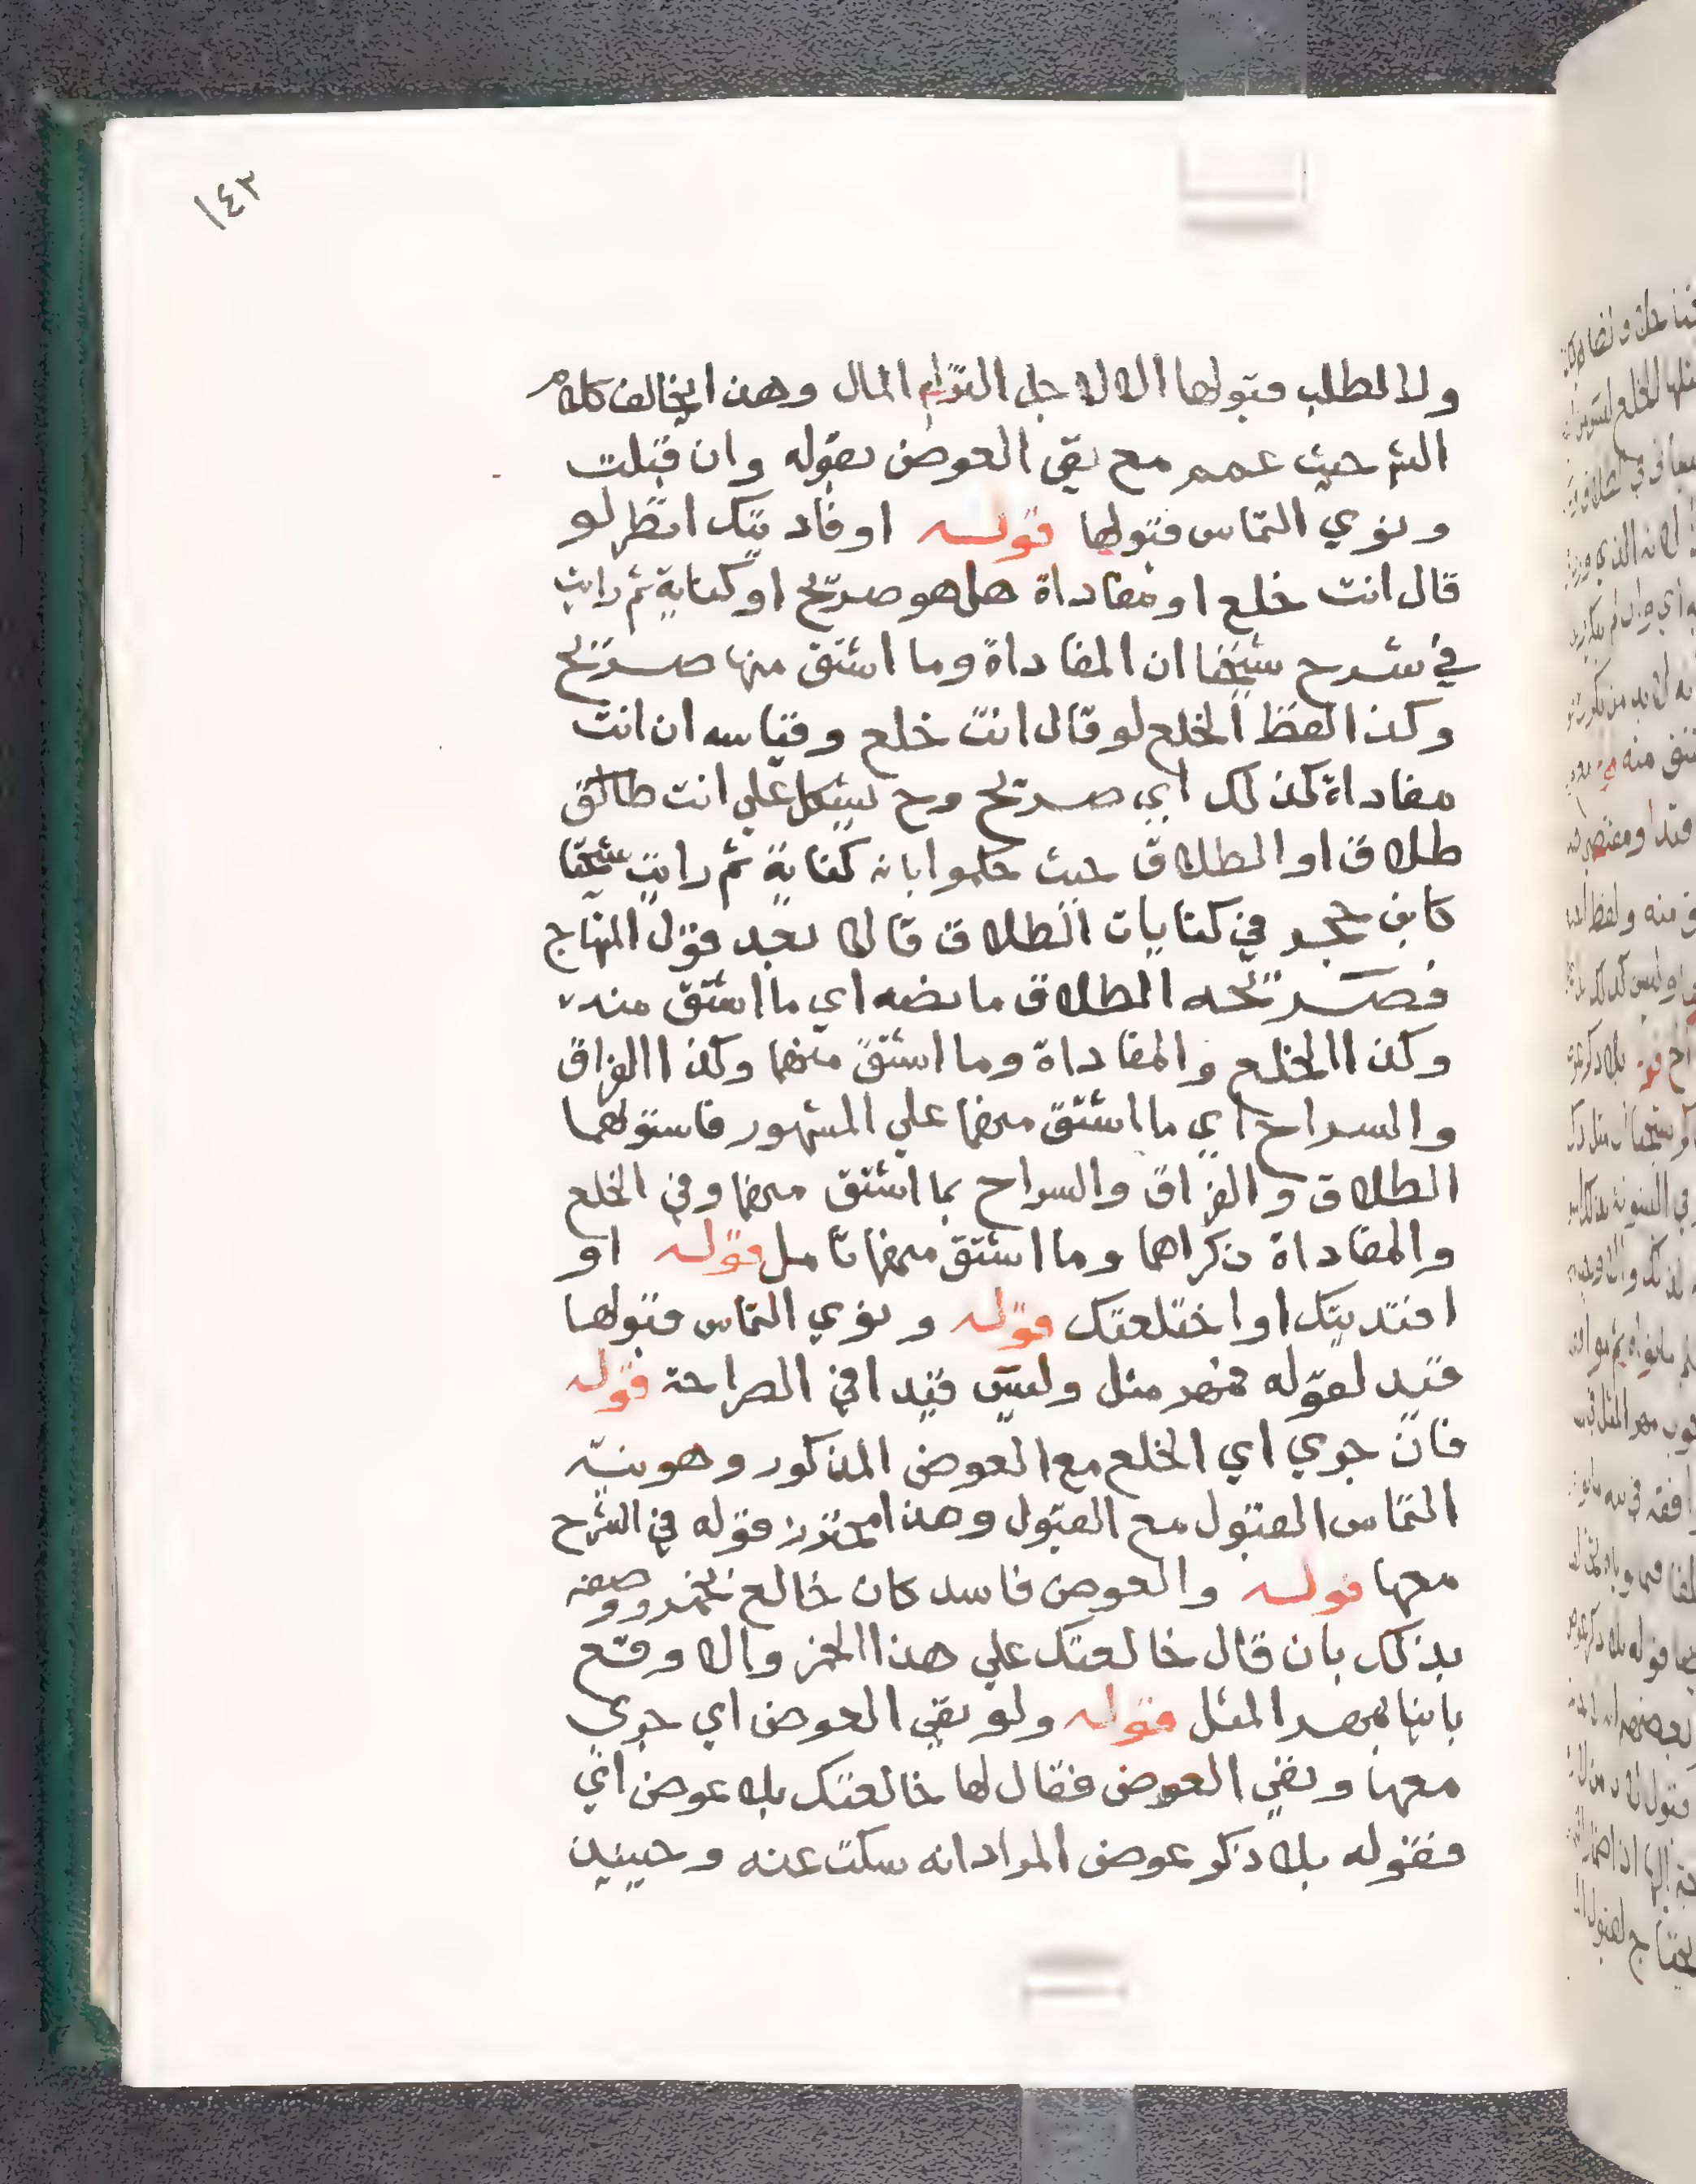 ١٤٣
ولا لطلب قبولها الا لاجل التزام المال وهذا يخالف كلام
الش حيث عمم مع نفي العوض بقوله وان قبلت
ونوي التماس قبولها قوله او فاديتك انظر لو
قال انت خلع او مفاداة هل هو صريح او كناية ثم رايت
في شرح شيخنا ان المفاداة وما اشتق منها صريح
وكذا لفظ الخلع لو قال انت خلع وقياسه ان انت
مفاداة كذلك اي صريح وح يشكل علي انت طالق
طلاق او الطلاق حيث حكموا بانه كناية ثم رايت شيخنا
كابن حجر في كنايات الطلاق قالا بعد قول المنهاج
فصريحه الطلاق ما نصه اي ما اشتق منه
وكذا الخلع والمفاداة وما اشتق منهما وكذا الفراق
والسراح اي ما اشتق منهما علي المشهور فاستولهما
الطلاق والفراق والسراح بما اشتق منهما وفي الخلع
والمفاداة ذكراهما وما اشتق منهما تامل قوله او
افتديتك او اختلعتك قوله ونوي التماس قبولها
قيد لقوله فمهر مثل وليس قيدا في الصراحة قوله
فان جري اي الخلع مع العوض المذكور وهو نية
التماس القبول مع القبول وهذا محترز قوله في الشرح
معها قوله والعوض فاسد كان خالع بخمر ووصفه
بذلك بان قال خالعتك علي هذا الخمر والا وقع
باينا بمهر المثل قوله ولو نفي العوض اي جري
معها ونفي العوض فقال لها خالعتك بلا عوض اي
فقوله بلا ذكر عوض المراد انه سكت عنه وحينيذ